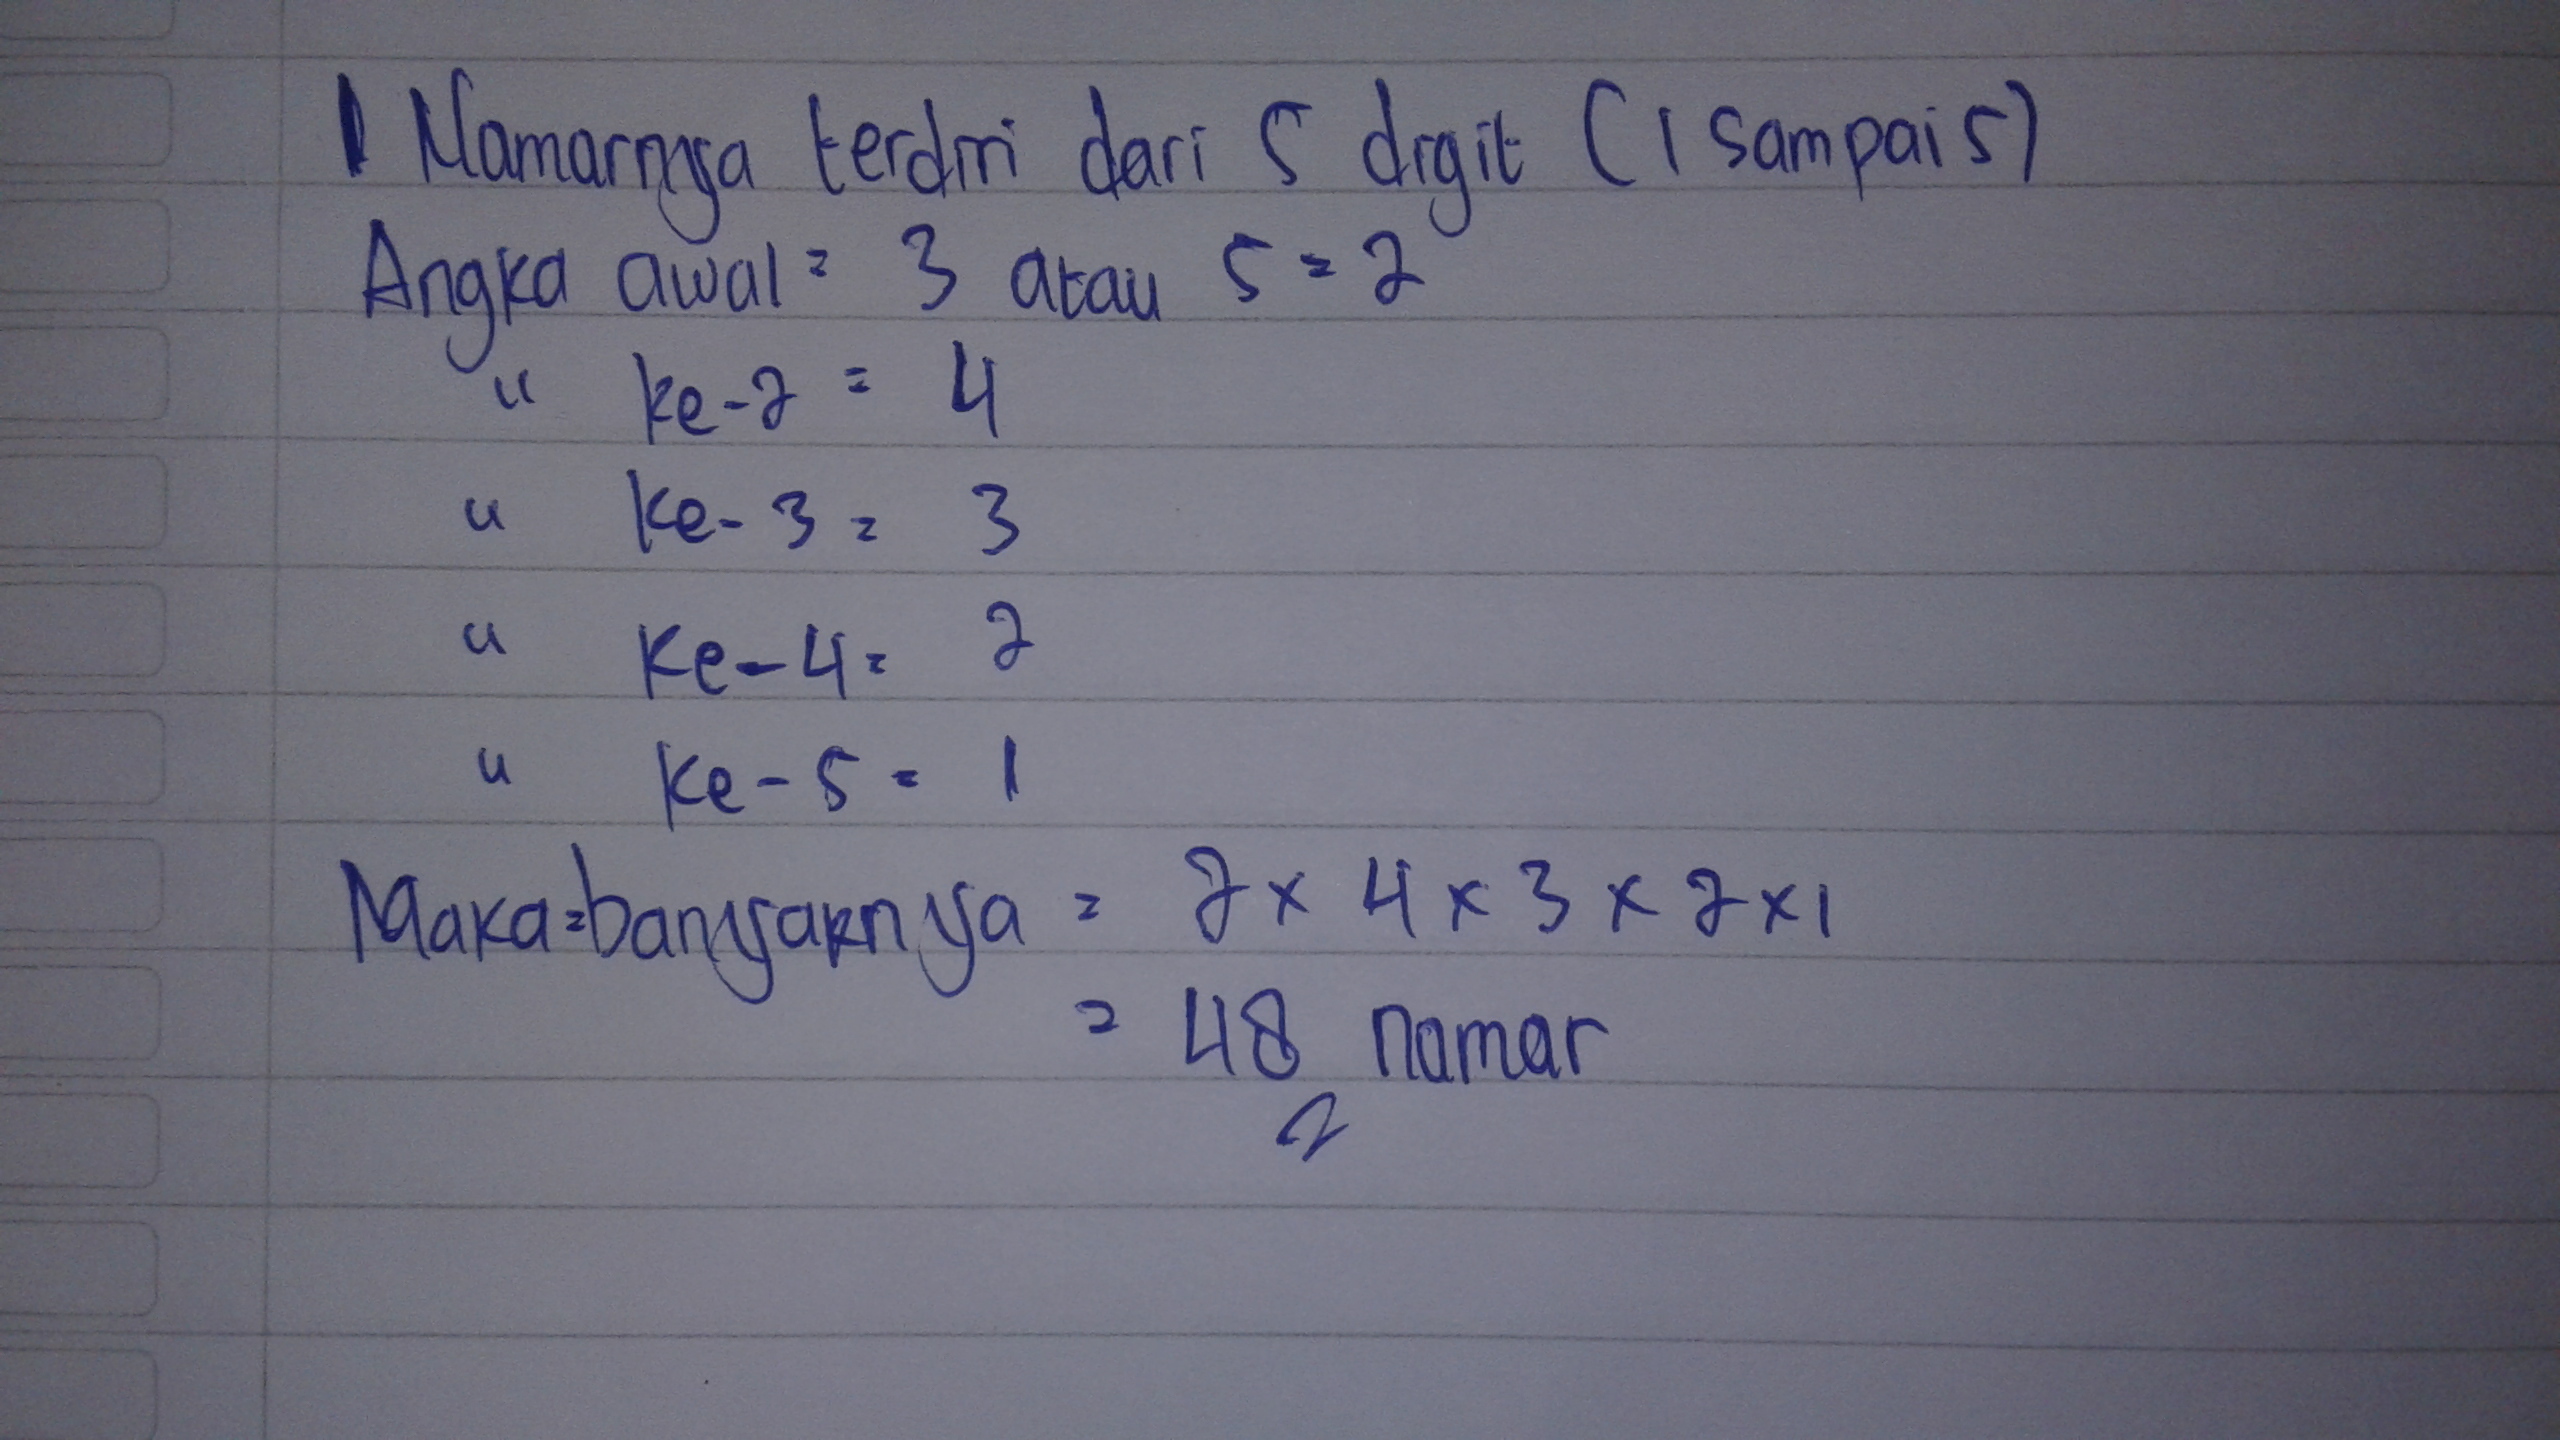 1 Nomornya terdiri dari 5 digit (1 sampai 5)
Angka awal = 3 atau 5 = 2
" ke-2 = 4
" ke-3 = 3
" ke-4 = 2
" ke-5 = 1
Maka=banyaknya = 2 x 4 x 3 x 2 x 1
= 48 nomor